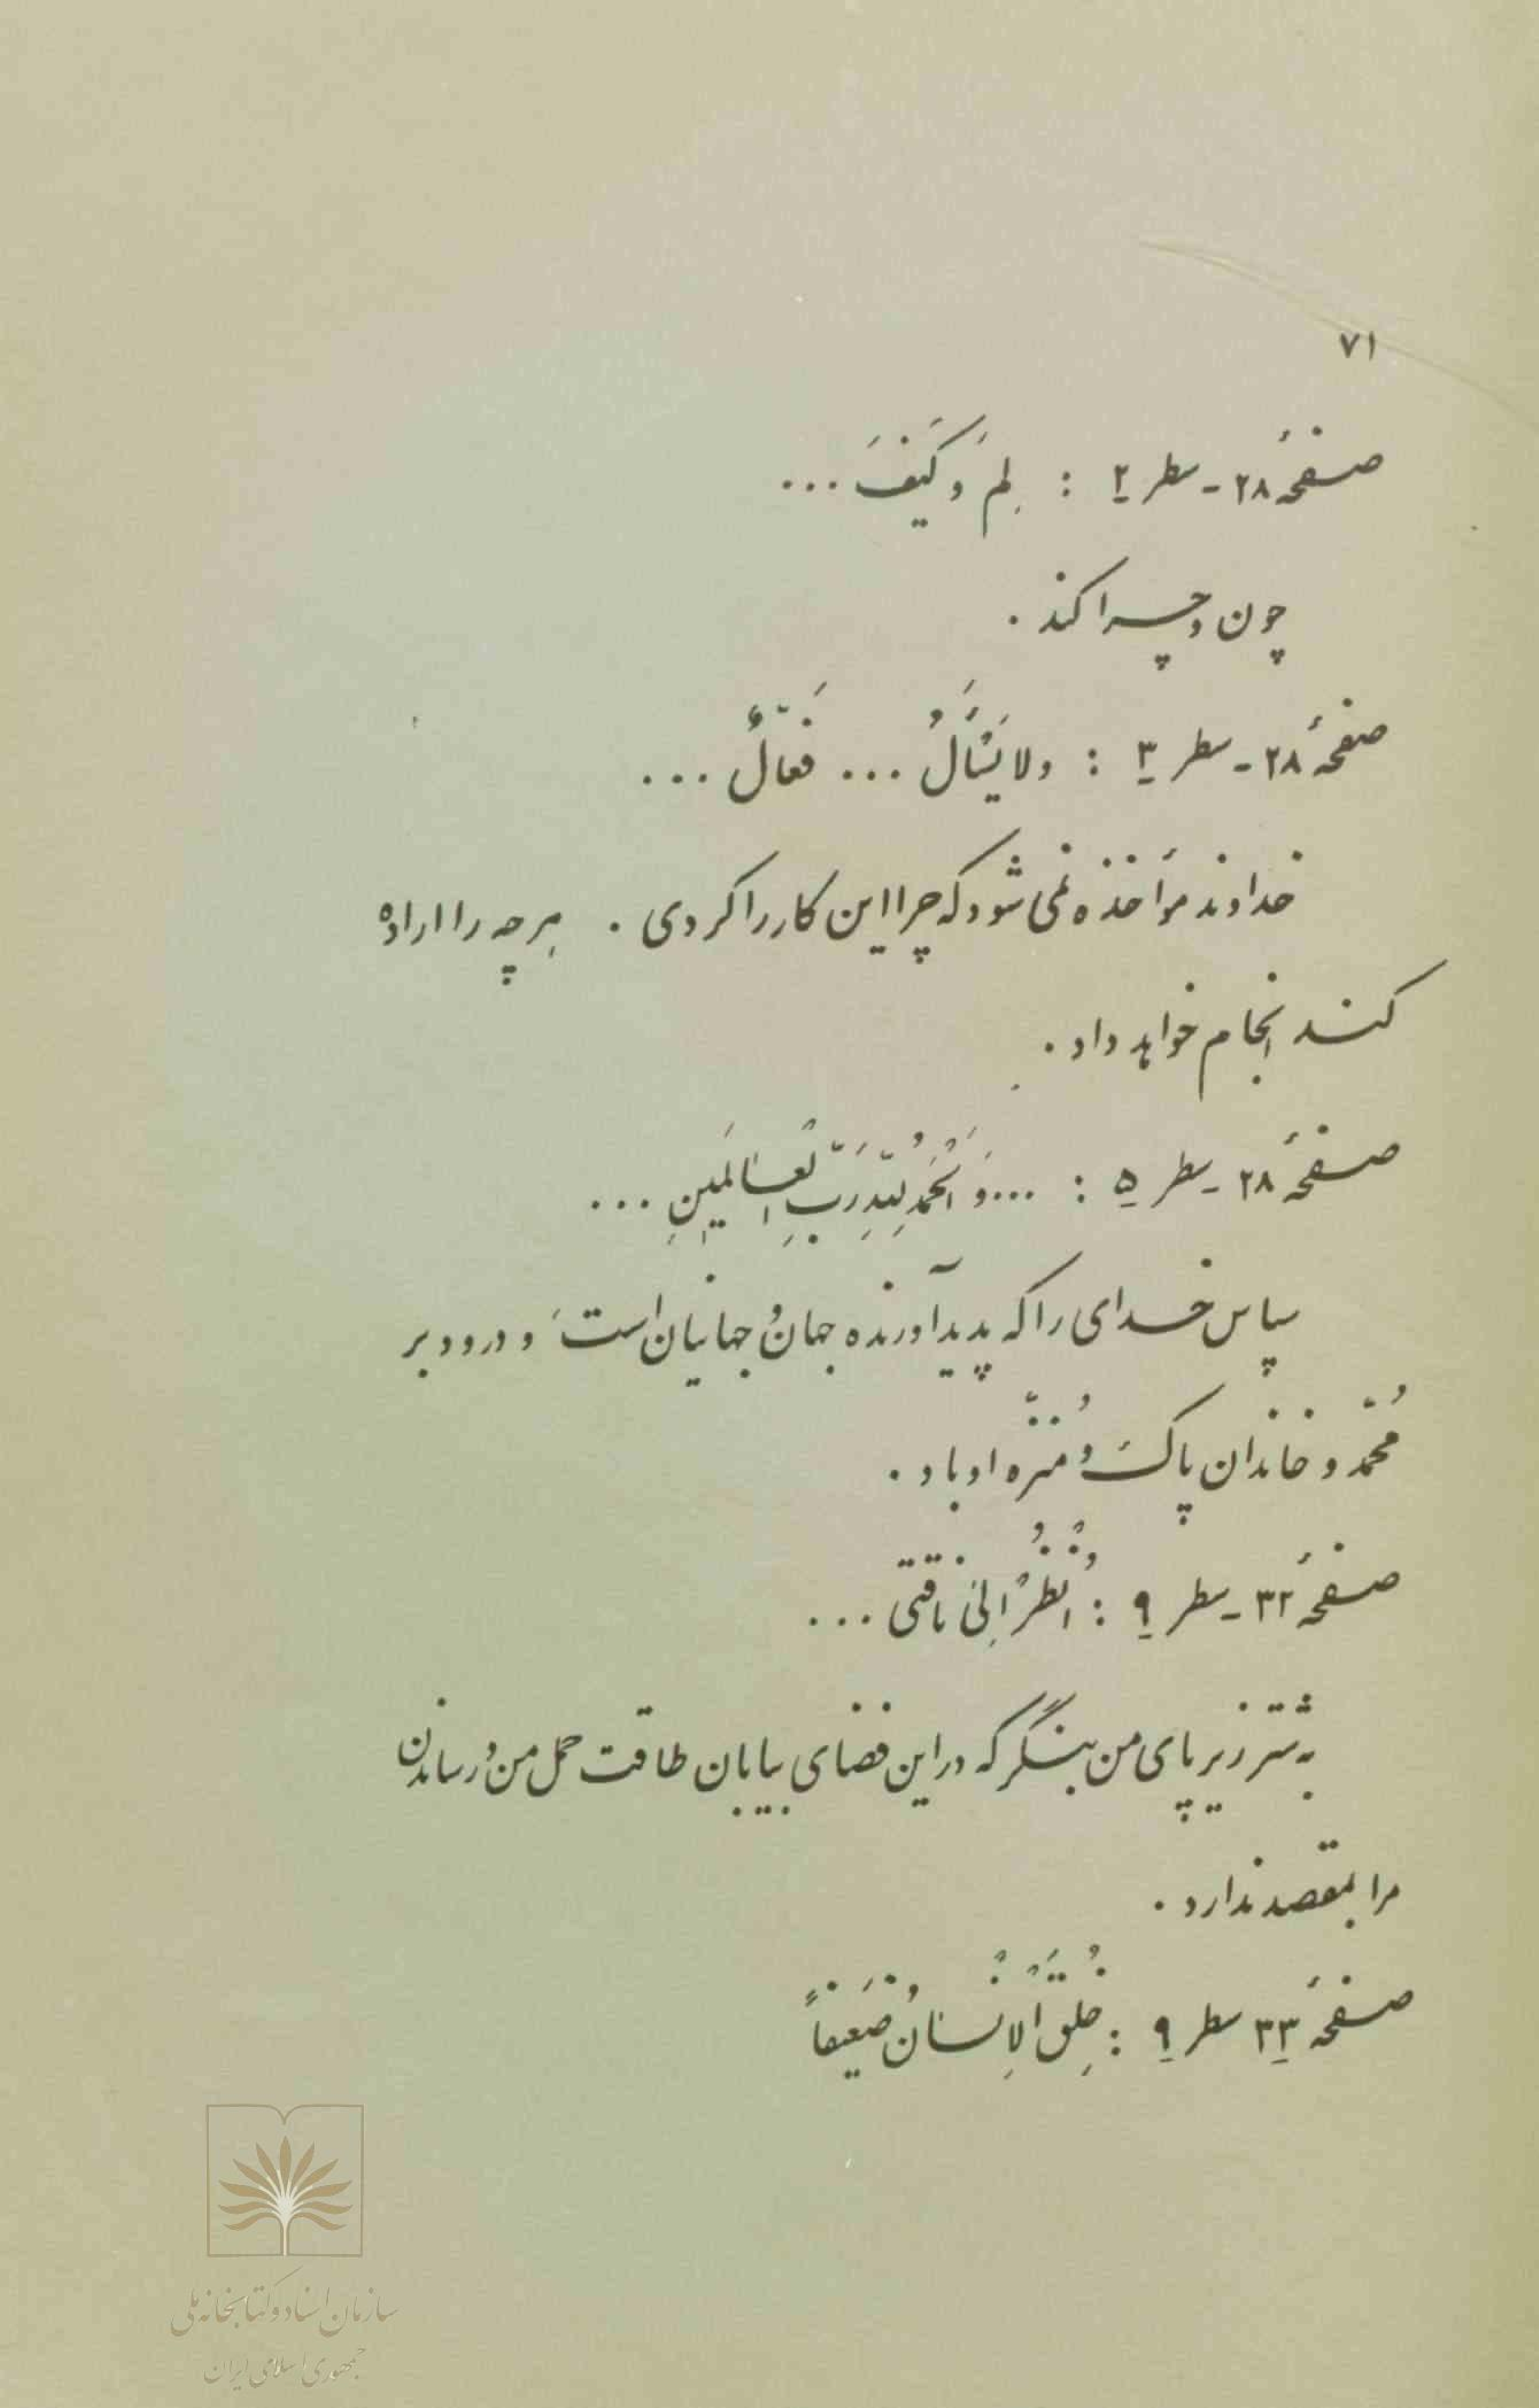 ۷۱
صفحهٔ ۲۸ - سطر ۲ : لِمَ وَ كَيْفَ ...
چون و چرا کند .
صفحهٔ ۲۸ - سطر ۳ : ولا يُسْأَلُ ... فَعّالٌ ...
خداوند مؤاخذه نمی شود که چرا این کار را کردی . هر چه را اراده
کند انجام خواهد داد .
صفحهٔ ۲۸ - سطر ۵ : ... وَ الْحَمْدُ لِلّهِ رَبِّ الْعالَمينِ ...
سپاس خدای را که پدیدآورنده جهان و جهانیان است و درود بر
مُحمّد و خاندان پاک و مُنزّه او باد .
صفحهٔ ۳۲ - سطر ۹ : اُنْظُرْ اِلىٰ ناقتى ...
به شتر زیر پای من بنگر که در این فضای بیابان طاقت حمل من و رساندن
مرا بمقصد ندارد .
صفحهٔ ۳۳ سطر ۹ : خُلِقَ الْاِنْسانُ ضَعيفاً
سازمان اسناد و کتابخانه ملی
جمهوری اسلامی ایران